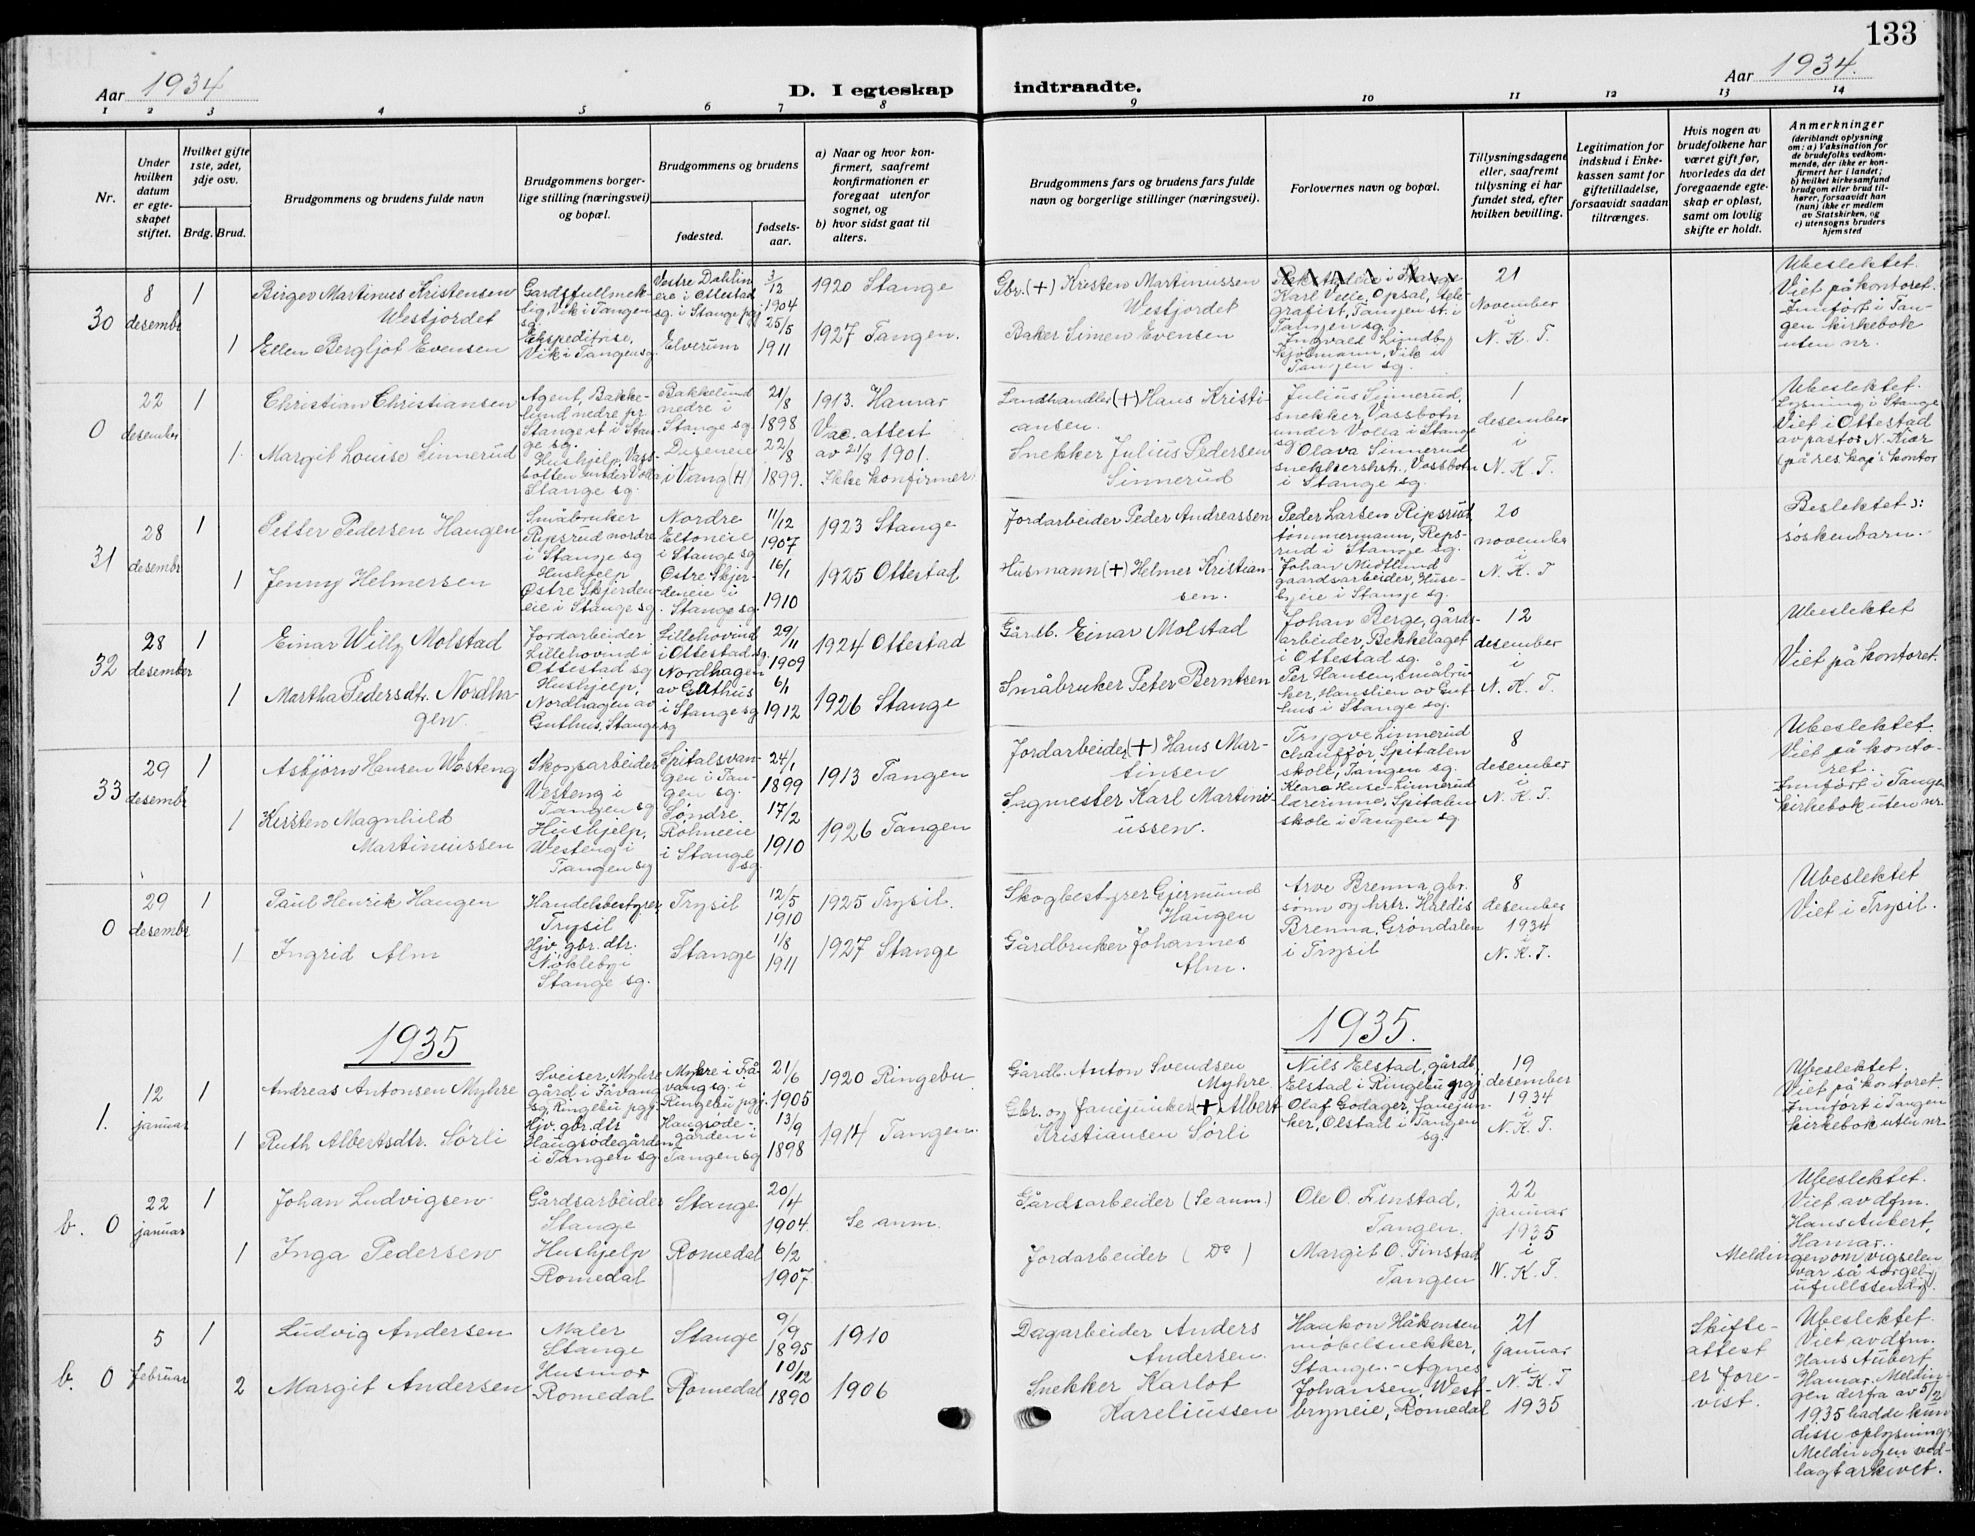 133
Aar 1934
D. I egteskap
indtraadte.
Aar 1934.
1 2 3 4 5 6 7 8 9 10 11 12 13 14
Nr.
Under hvilken datum er egteskapet stiftet.
Hvilket gifte 1ste, 2det, 3dje osv.
Brdg. Brud.
Brudgommens og brudens fulde navn
Brudgommens borgerlige stilling (næringsvei) og bopæl.
Brudgommens og brudens
fødested.
fødselsaar.
a) Naar og hvor konfirmert, saafremt konfirmationen er foregaat utenfor sognet, og
b) hvor sidst gaat til alters.
Brudgommens fars og brudens fars fulde navn og borgerlige stillinger (næringsvei).
Forlovernes navn og bopæl.
Tillysningsdagene eller, saafremt tillysning ei har fundet sted, efter hvilken bevilling.
Legitimation for indskud i Enkekassen samt for giftetilladelse, forsaavidt saadan tiltrænges.
Hvis nogen av brudefolkene har været gift før, hvorledes da det foregaaende egteskap er opløst, samt om lovlig skifte er holdt.
Anmerkninger
(deriblandt oplysning om: a) Vaksination for de brudefolks vedkommende, der ikke er konfirmert her i landet;
b) hvilket kirkesamfund brudgom eller brud tilhører, forsaavidt han (hun) ikke er medlem av Statskirken, og
c) utensogns bruders hjemsted
30
8 desembr
1
Birger Martinus Kristensen Westjordet
Gardsfullmektig, Vik i Tangen sg.
Vestre Dahlineie i Ottestad sg. i Stange pgj
3/12 1904
1920 Stange
Gbr. (+) Kristen Martinussen Westjordet
Karl Velle Opsal, telegrafist, Tangen st. i Tangen sg.
21 November i N. K. T.
Ubeslektet. Viet på kontoret. Innført i Tangen kirkebok uten nr.
1
Ellen Bergljot Evensen
Ekspeditrise, Vik i Tangen sg
Elverum
25/5 1911
1927 Tangen.
Baker Simen Evensen
Ingvald Lundby kjøbmann, Vik i Tangen sg.
0
22 desember
1
Christian Christiansen
Agent, Bakkelund nedre pr Stange st i Stange sg.
Bakkelund nedre i Stange sg
21/8 1898
1913. Hamar
Landhandler (+) Hans Kristiansen.
Julius Sinnerud, snekker, Vassbotn under Volla i Stange sg
1 desember i N. K. T.
Ubeslektet. Lysning i Stange Viet i Ottestad av pastor N. Kiær (på res. kap's kontor
1
Margit Louise Sinnerud
Hushjelp Vassbotten under Volla Stange sg.
Diseneie i Vang (H)
22/8 1899.
Vac. attest av 21/8 1901. Ikke konfirmer
Snekker Julius Pedersen Sinnerud
Olava Sinnerud snekkershst. Vassbotn i Stange sg.
31
28 desembr
1
Petter Pedersen Haugen
Småbruker Ripsrud nordre i Stange sg
Nordre Eltoneie i Stange sg
11/12 1907
1923 Stange
Jordarbeider Peder Andreassen
Peder Larsen Ripsrud tømmermann, Repsrud i Stange sg.
20 november i N. K. T
Beslektet): søskenbarn.
1
Jenny Helmersen
Hushjelp Østre Skjerdeneie i Stange sg
Østre Skjerdeneie i Stange sg.
16/1 1910
1925 Ottestad
Husmann (+) Helmer Kristiansen.
Johan Midtlund gaardsarbeider, Husebyeie i Stange sg.
32
28 desember
1
Einar Willy Molstad
Jordarbeider Lillehovind i Ottestad sg
Lillehovind i Ottestad sg.
29/11 1909
1924 Ottestad
Gårdb. Einar Molstad
Johan Berge, gårdsarbeider, Bekkelaget i Ottestad sg.
12 desember i N. K. T.
Ubeslektet
Viet på kontoret.
1
Martha Pedersdtr. Nordhagen
Hushjelp, Nordhagen av Guthus, Stange sg
Nordhagen av Guthus i Stange sg
6/1 1912
1926 Stange
Småbruker Peter Berntsen
Per Hansen, småbruker, Hanslien av Guthus i Stange sg.
33
29 desembr
1
Asbjørn Hansen Westeng
Skogsarbeider Vesteng i Tangen sg
Spitalsvangen i Tangen sg.
24/1 1899
1913 Tangen
Jordarbeider (+) Hans Martinsen
Trygve Linnerud chauffør, Spitalen skole, Tangen sg.
8 desember i N. K. T.
Ubeslektet. Viet på kontoret. Innført i Tangen kirkebok uten nr
1
Kirsten Magnhild Martinussen
Hushjelp, Westeng i Tangen sg
Søndre Rohneeie i Stange sg.
17/2 1910
1926 Tangen
Sagmester Karl Martiniussen.
Klara Huse-Linnerud lærerinne, Spitalen skole i Tangen sg.
0
29 desembr
1
Paul Henrik Haugen
Handelsbestyrer Trysil
Trysil
12/5 1910
1925 Trysil.
Skogbestyrer Gjermund Haugen
Arve Brenna, gbr. sønn og hstr. Haldis Brenna, Grøndalen i Trysil
8 desember 1934 i N. K. T.
Ubeslektet Viet i Trysil.
1
Ingrid Alm
Hjv. gbr. dtr. Nøkleby i Stange sg.
Stange
1/8 1911
1927 Stange
Gårdbruker Johannes Alm.
1935
1935.
1.
12 januar
1
Andreas Antonsen Myhre
Sveiser, Myhre gård i Fåvang sg, Ringebu pgj.
Myhre i Fåvang sg. i Ringebu pgj.
21/6 1905
1920 Ringebu
Gårdb. Anton Svendsen Myhre
Nils Elstad, gårdb, Elstad i Ringebu pgj
19 desember 1934 i N. K. T.
Ubeslektet. Viet på kontoret. Innført i Tangen kirkebok uten nr
1
Ruth Albertsdtr. Sørli
Hjv. gbr. dtr Haugsodegården i Tangen sg
Haugsodegården i Tangen sg
13/9 1898
1914 Tangen.
Gbr. og fanejunker (+) Albert Kristiansen Sørli
Olaf Godager, fanejunker, Olstad i Tangen sg
b. 0
22 januar
1
Johan Ludvigsen
Gårdsarbeider Stange
Stange
20/4 1904.
Se anm.
Gårdsarbeider (Se anm.)
Ole O. Finstad, Tangen.
22 januar 1935 i N. K. T.
Ubeslektet. Viet av dfm. Hans Aubert, Hamar. Meldingen om vigselen var så sørgelig ufullstendig.
1
Inga Pedersen
Hushjelp Romedal
Romedal
6/2 1907.
Jordarbeider ( Do )
Margit O. Finstad Tangen
b. 0
5 februar
1
Ludvig Andersen
Maler Stange
Stange
9/9 1895
1910
Dagarbeider Anders Andersen.
Haakon Håkensen møbelsnekker, Stange. -
21 januar i N. K. T 1935
Skifteattest er forevist.
Ubeslektet. Viet av dfm. Hans Aubert, Hamar. Meldingen derfra av 5/2 1935 hadde kun disse oplysning. Meldingen vedlagt arkivet.
2
Margit Andersen
Husmor Romedal
Romedal
10/12 1890
1906
Snekker Karlot Kareliussen
Agnes Johansen, Westbryneie, Romedal